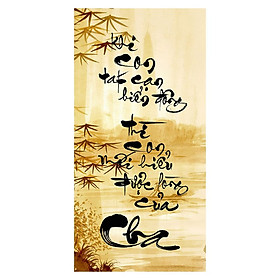 khi
con
tát cạn
biển đông
thì
con
mới hiểu
được lòng
của
Cha